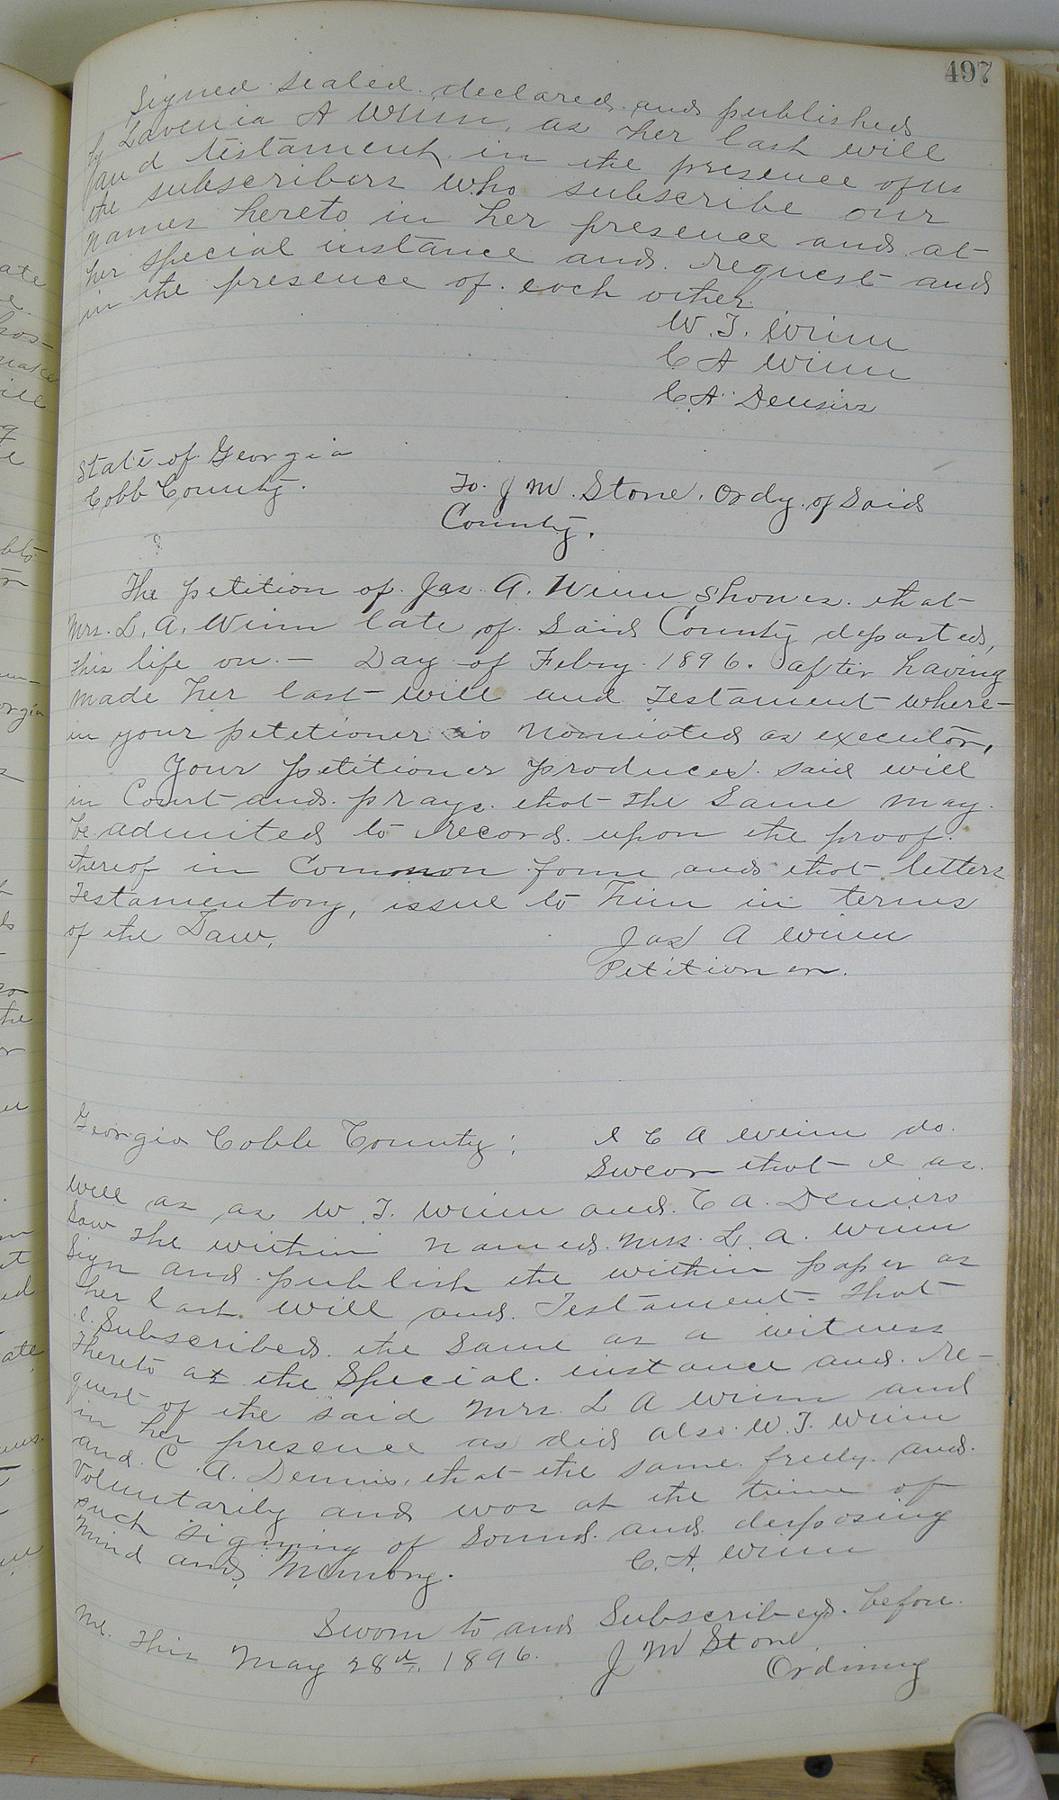 497
Signed sealed declared and published
by Lavenia A Winn, as her last will
and testament in the presence of us
the subscribers who subscribe our
names hereto in her presence and at
her special instance and request and
in the presence of each other
W. T. Winn
C A Winn
C. A. Dennis
State of Georgia
Cobb County.
To J M. Stone, Ordy of Said
County.
The petition of Jas A. Winn shows that
Mrs. L. A. Winn late of Said County departed,
this life on — Day of Febry 1896. after having
made her last will and Testament where-
in your petetioner is Nominated as executor,
Your petitioner produces said will
in Court and prays that the Same may
be admited to record upon the proof
thereof in Common form and that letters
Testamentory, issue to him in terms
of the Law,
Jas A Winn
Petitioner.
Georgia Cobb County:
I C A Winn do
Swear that I as
well as as W. T. Winn and C A. Dennis
Saw the within named Mrs. L. A. Winn
Sign and publish the within paper as
her last will and Testament - That
I Subscribed the Same as a witness
thereto at the Special instance and re-
quest of the said Mrs L A Winn and
in her presence as did also W. T. Winn
and C. A. Dennis, that the same freely and
Voluntarily and was at the time of
such signing of Sound and desposing
Mind and Memory.
C. A. Winn
Sworn to and Subscribed before
Me. This May 28th, 1896.
J M Stone
Ordinary